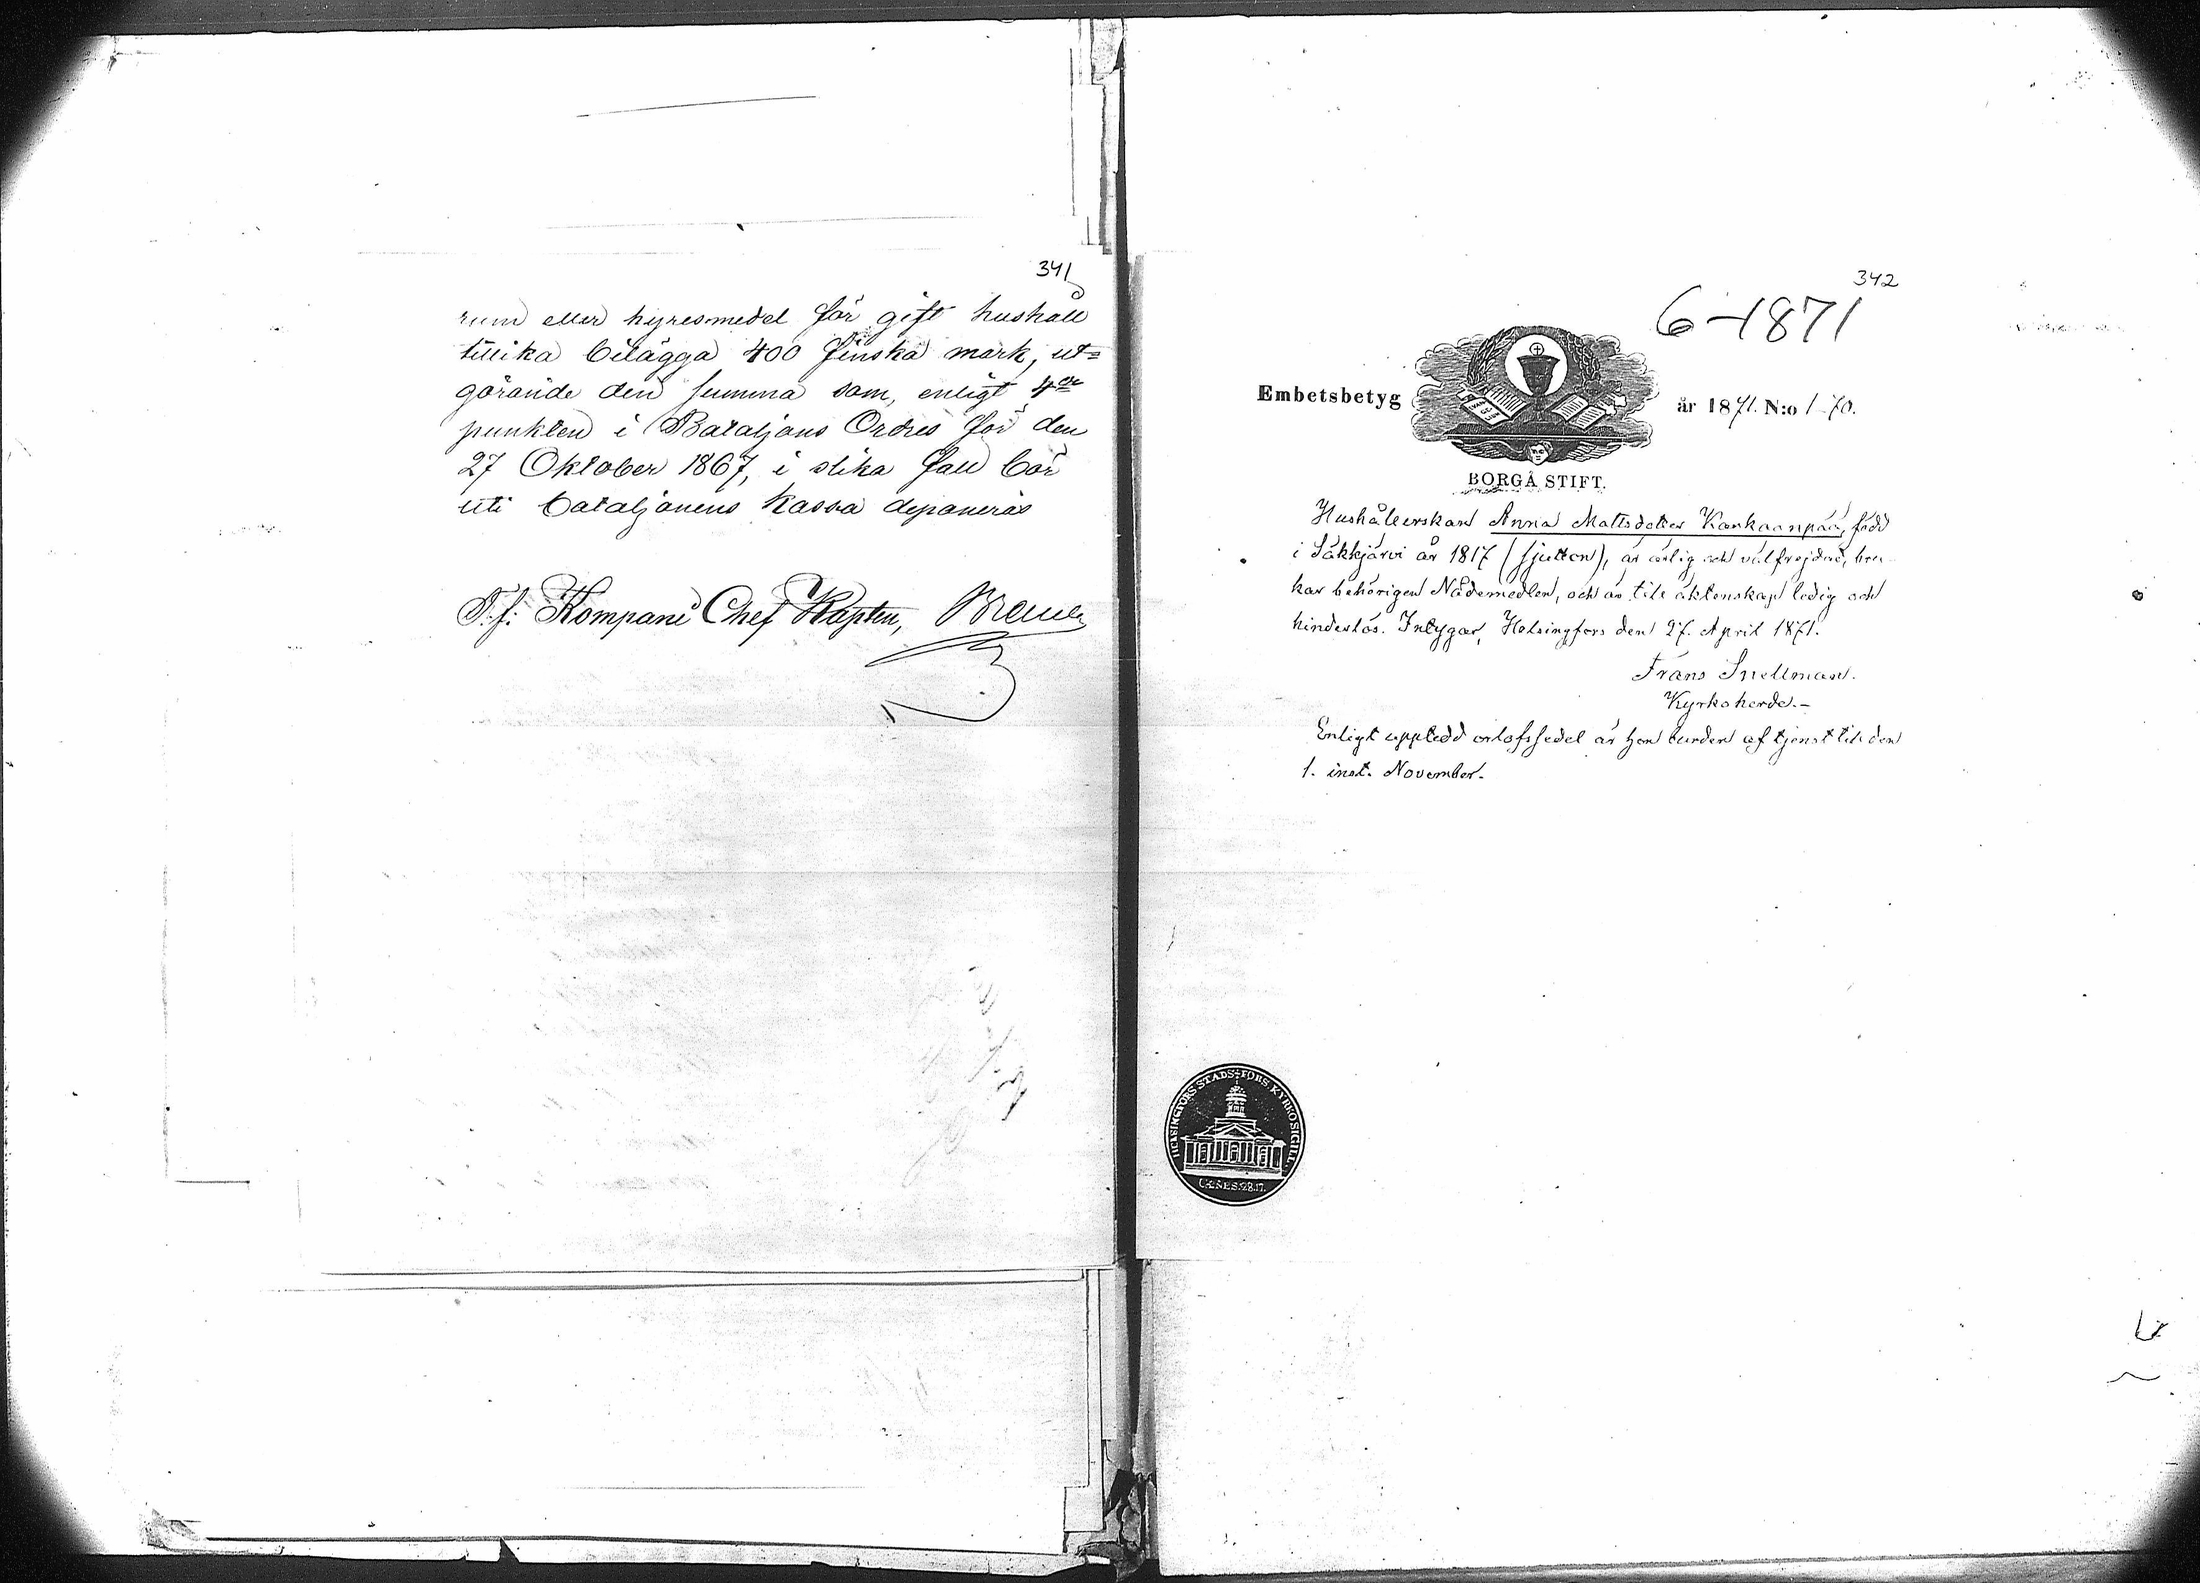 341
rum eller hyresmedel för gift hushåll
tillika bilägga 400 finska mark, ut=
görande den summa som, enligt 4de
punkten i Bataljons Ordres för den
27 Oktober 1867, i slika fall bör
uti bataljonens Kassa deponeras
T.f. Kompani Chef Kapten,
342
6-1871
Embetsbetyg år 1871. N:o 1-70.
BORGÅ STIFT.
Hushållerskan Anna Mattsdotter Kankaanpää, född
i Säkkjärvi år 1817 (sjutton), är ärlig och välfrejdad, bru-
kar behörigen Nådemedlen, och är till äktenskap ledig och
hinderlös. Intygar, Helsingfors den 27. April 1871.
Frans Snellman.
Kyrkoherde.-
Enligt uppledd orlofssedel är hon bunden af tjenst till den
1. inst. November.
HELSINGFORS STADS FÖRS. KYRKOSIGILL.
GENES. 28.17.